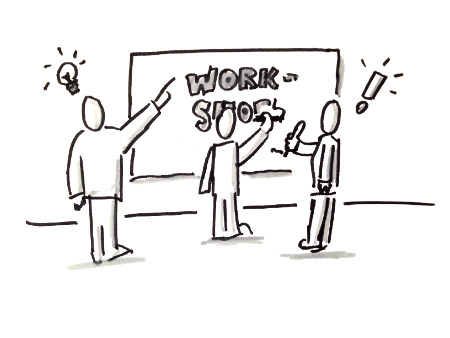 WORK-
SHOP
!